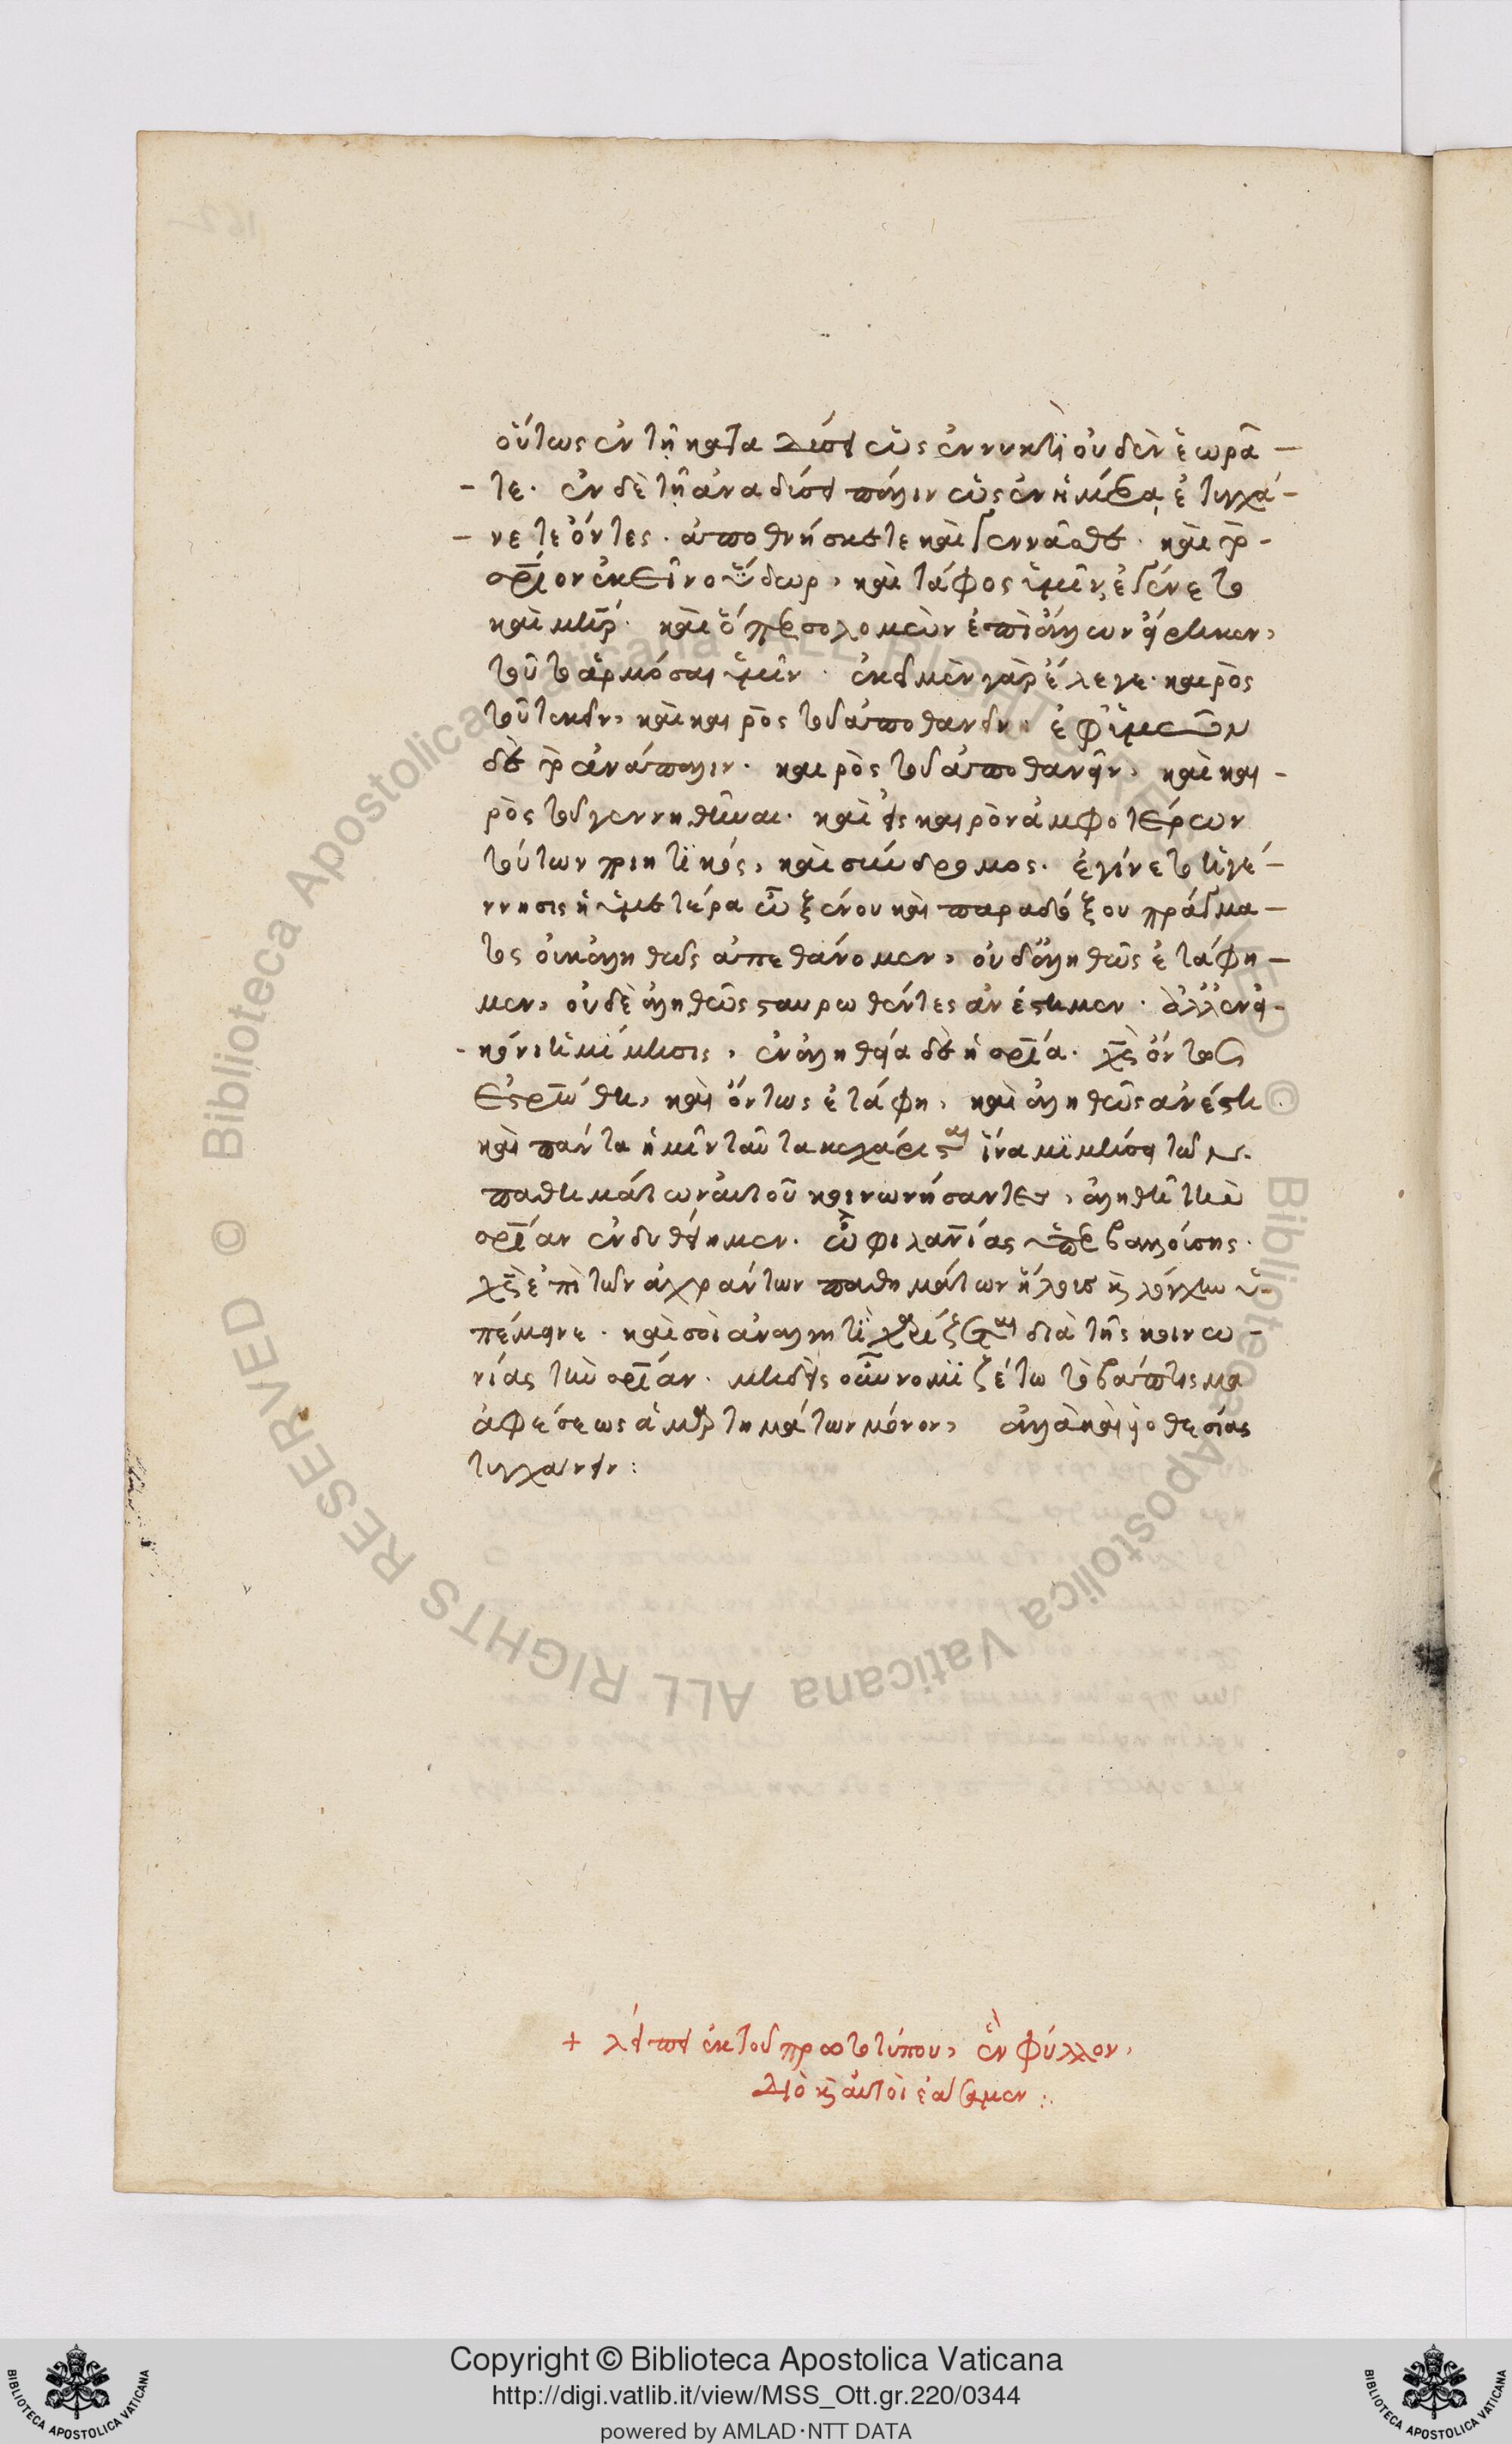 οὕτως ἐν τῇ καταδύσει ὡς ἐν νυκτὶ οὐδὲν ἑωρᾶ-
-τε. ἐν δὲ τῇ ἀναδύσει πάλιν ὡς ἐν ἡμέρᾳ ἐτυγχά-
-νετε ὄντες. ἀποθνήσκετε καὶ γεννᾶσθε. καὶ τὸ-
σρ̅ιον ἐκεῖνο ὕδωρ, καὶ τάφος ὑμῖν ἐγένετο
καὶ μη̅ρ. καὶ ὅπερ σολομὼν ἐπὶ ἄλλων εἴρηκεν,
τοῦτο ἁρμόσαι ὑμῖν. ἐκεῖ μὲν γὰρ ἔλεγε. καιρὸς
τοῦ τεκεῖν, καὶ καιρὸς τοῦ ἀποθανεῖν. ἐφ' ὑμῶν
δὲ τὸ ἀνάπαλιν. καιρὸς τοῦ ἀποθανεῖν, καὶ και-
ρὸς τοῦ γεννηθῆναι. καὶ εἷς καιρὸν ἀμφοτέρων
τούτων ποιητικός, καὶ σύνδρομος. ἐγίνετο ἡ γέ-
ννησις ἡ ὑμετέρα ὢ ξένου καὶ παραδόξου πράγμα-
τος οὐκ ἀληθῶς ἀπεθάνομεν, οὐδ' ἀληθῶς ἐτάφη-
μεν, οὐδὲ ἀληθῶς σταυρωθέντες ἀνέστημεν. ἀλλ' ἐν εἰ-
-κόνι ἡ μίμησις, ἐν ἀληθείᾳ δὲ ἡ σρ̅ία. χ̅ς ὄντως
ἐσρ̅ώθη, καὶ ὄντως ἐτάφη, καὶ ἀληθῶς ἀνέστη.
καὶ πάντα ἡμῖν ταῦτα κεχάρισται ἵνα μιμήσει τῶν
παθημάτων αὐτοῦ κοινωνήσαντες, ἀληθῆ τὴν
σρ̅ίαν ἐνδυθείημεν. ὢ φιλαν̅ίας ὑπερβαλλούσης.
χ̅ς ἐπὶ τῶν ἀχράντων παθημάτων ἥλοις κ λόγχην ὑ-
πέμεινε. καὶ σοὶ ἀναλγητὶ χαρίζεται διὰ τῆς κοινω-
νίας τὴν σρ̅ίαν. μηδεὶς οὖν νομιζέτω τὸ βάπτισμα
ἀφέσεως ἁμαρτημάτων μόνον, ἀλλὰ καὶ υἱοθεσίας
τυγχάνειν:
+ λείπει ἐκ τοῦ πρωτοτύπου, ἓν φύλλον,
διὸ κ αὐτοὶ εἰάσαμεν :.
Copyright © Biblioteca Apostolica Vaticana
http://digi.vatlib.it/view/MSS_Ott.gr.220/0344
powered by AMLAD·NTT DATA
BIBLIOTECA APOSTOLICA VATICANA
BIBLIOTECA APOSTOLICA VATICANA
© Biblioteca Apostolica Vaticana ALL RIGHTS RESERVED
© Biblioteca Apostolica Vaticana ALL RIGHTS RESERVED